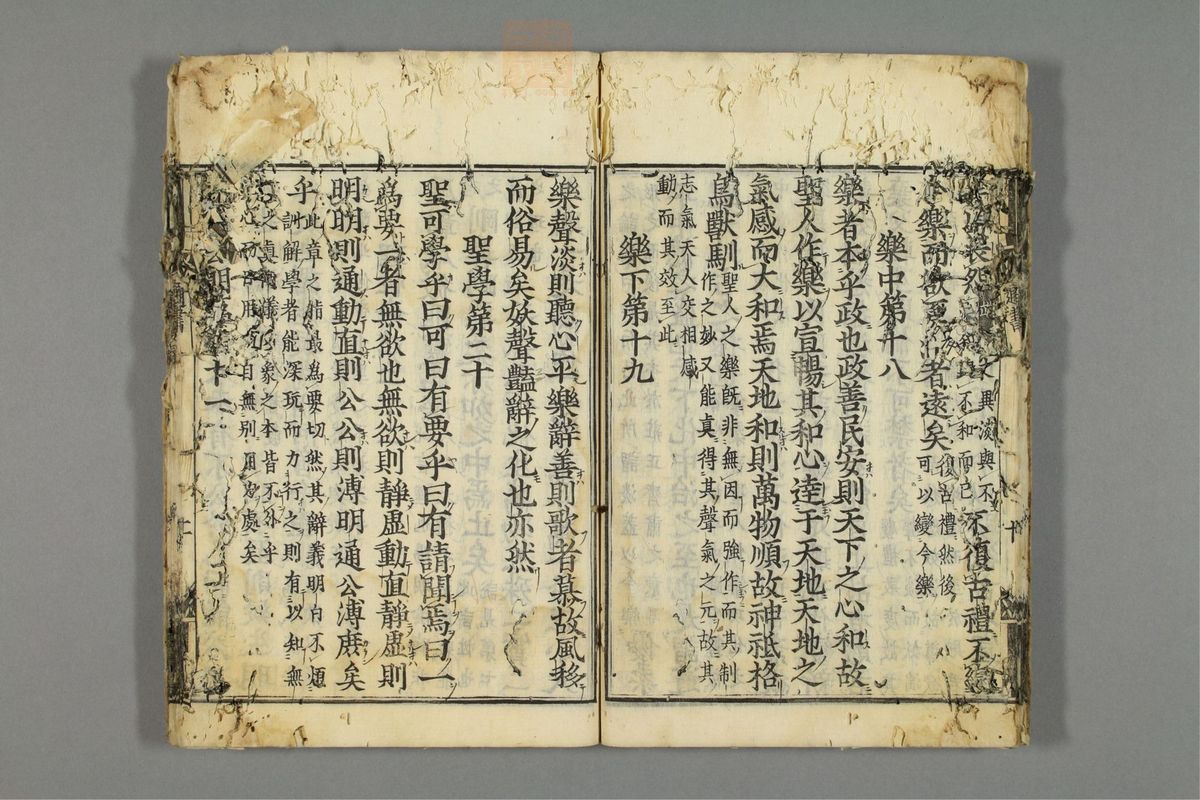 異淡與不
不和而已
不復古禮不
樂而欲
者遠矣
復古禮然後
可以變今樂
樂中第十八
樂者本乎政也政善民安則天下之心和故
聖人作樂以宣暢其和心達于天地天地之
氣感而大和焉天地和則萬物順故神祗格
鳥獸馴
聖人之樂旣非無因而強作而其制
作之妙又能真得其聲氣之元故其
志氣天人交相感
動而其效至此
樂下第十九
樂聲淡則聽心平樂辭善則歌者慕故風移
而俗易矣妖聲豔辭之化也亦然
聖學第二十
聖可學乎曰可曰有要乎曰有請聞焉曰一
爲要一者無欲也無欲則靜虛動直靜虛則
明明則通動直則公公則溥明通公溥庶矣
乎
此章之指最爲要切然其辭義明白不煩
訓解學者能深玩而力行之則有以知無
之真
象之本皆不外乎
自無別用力處矣
明第二十一